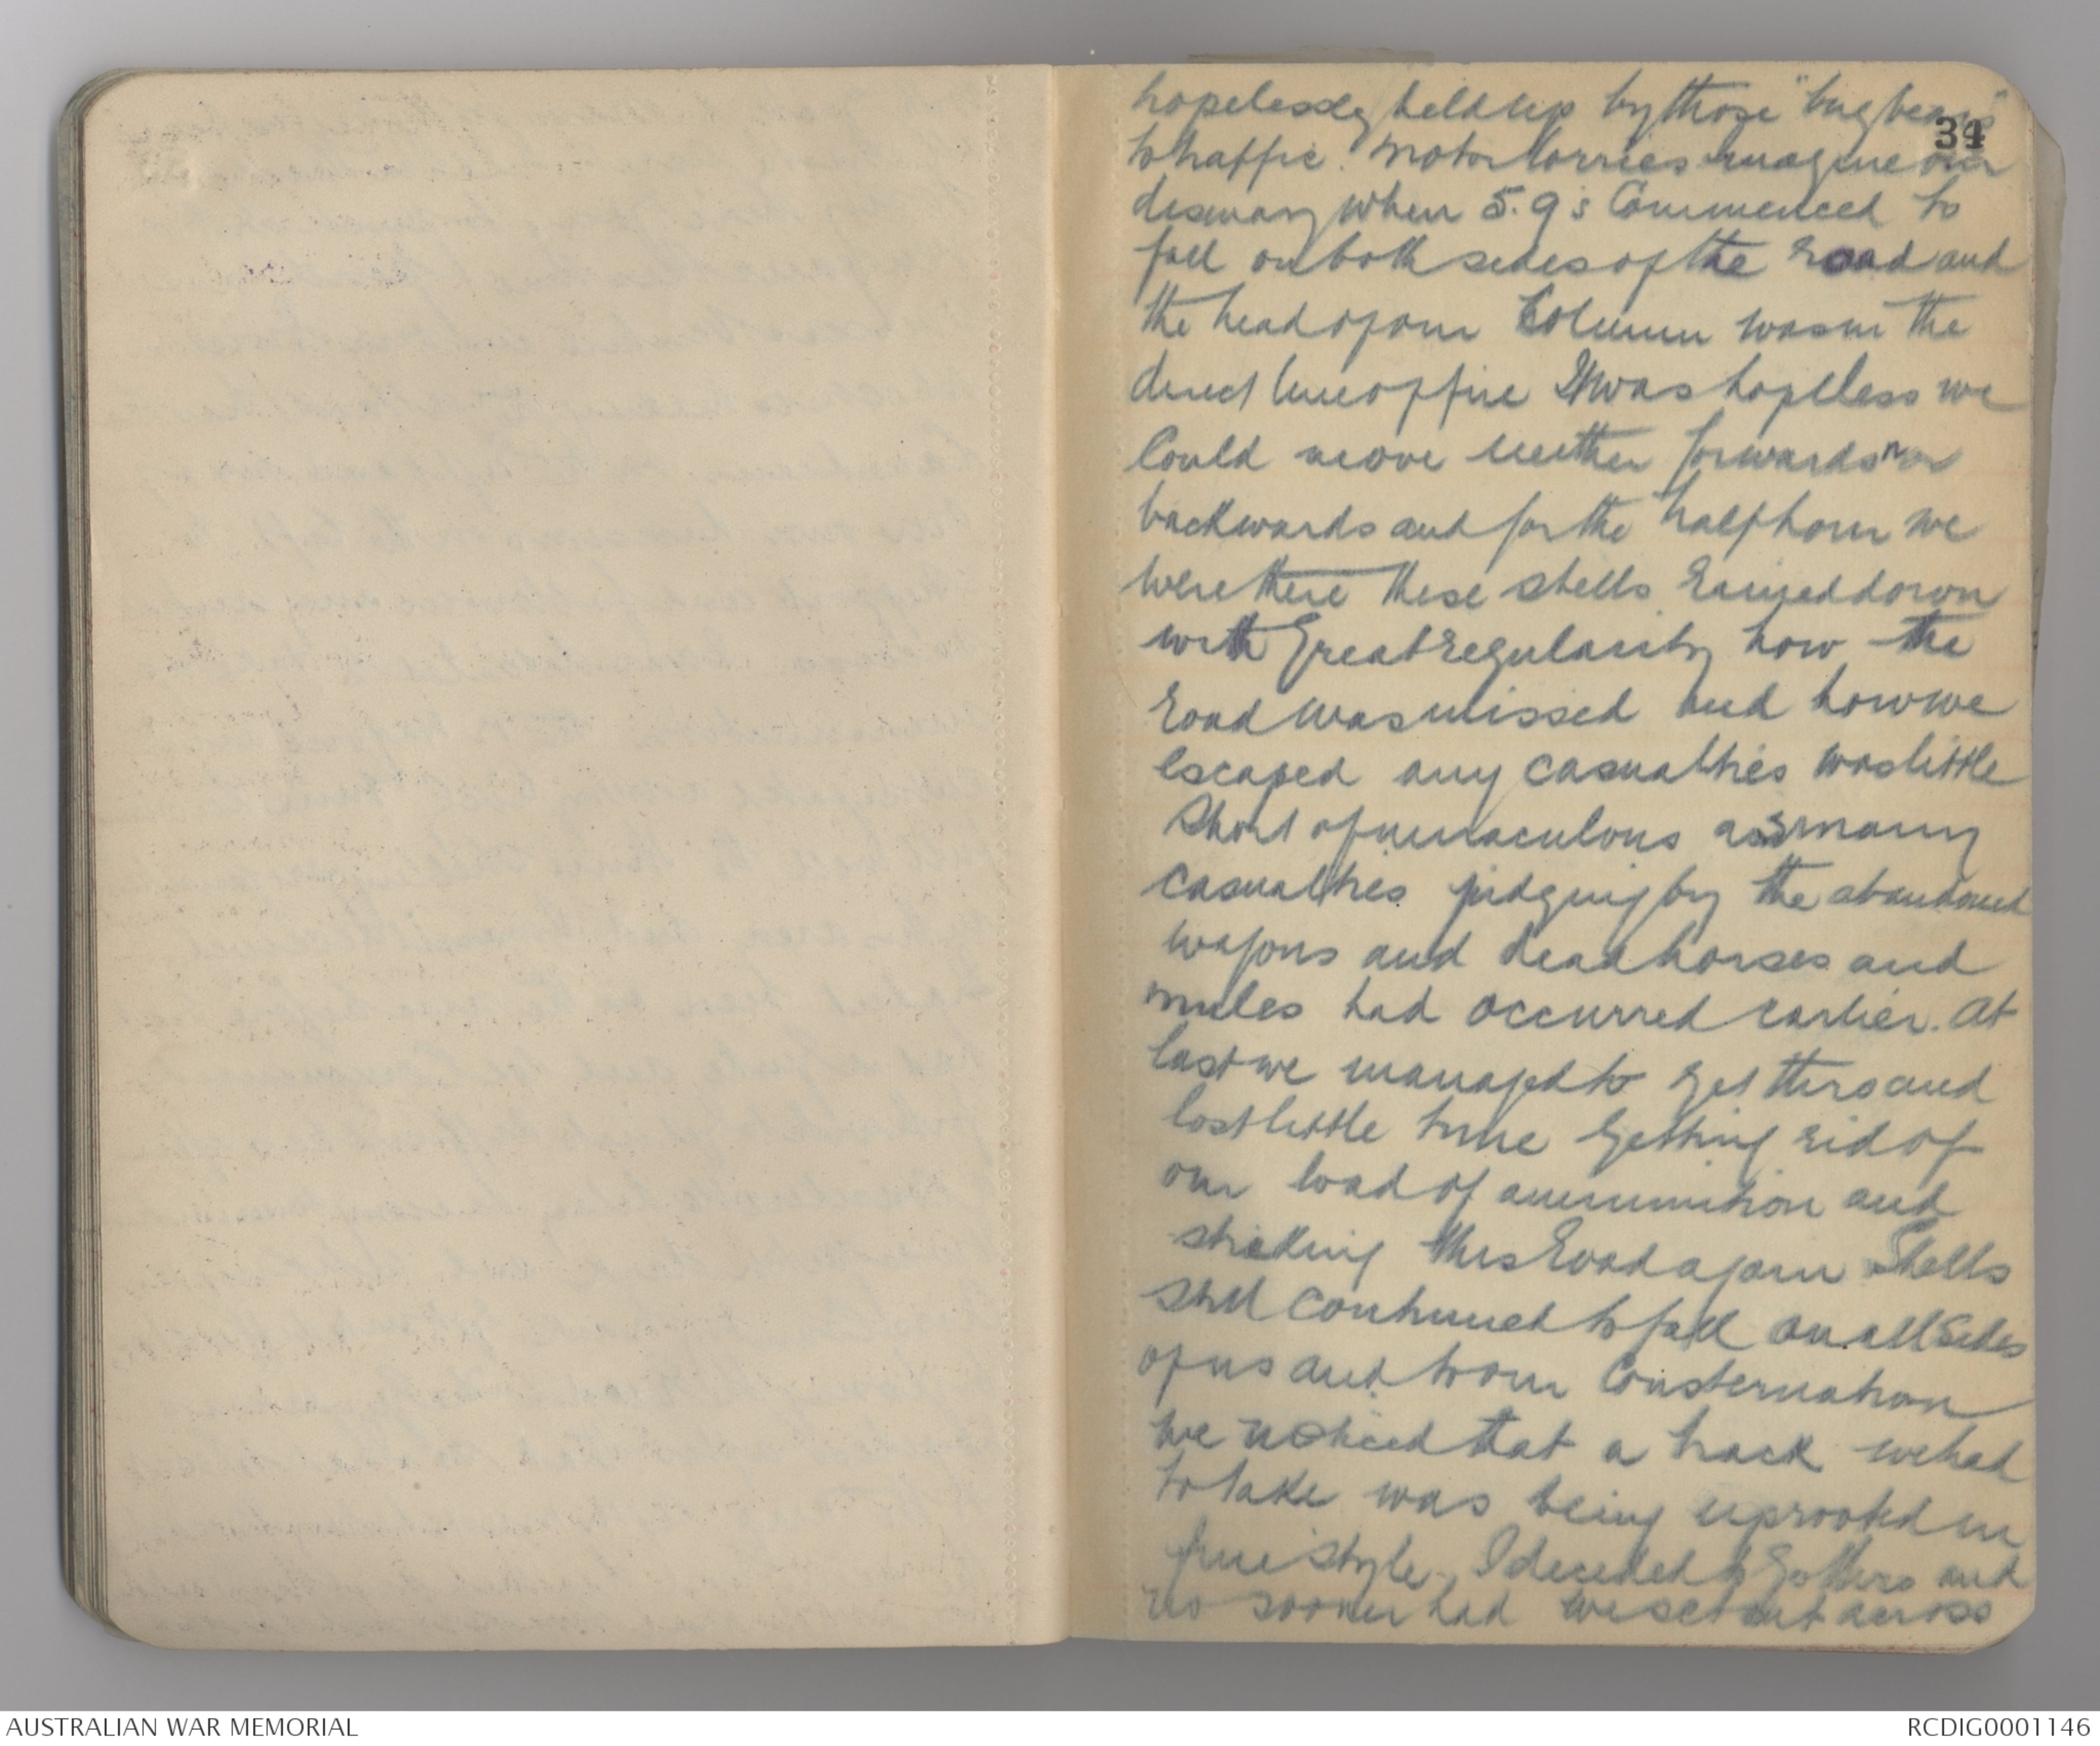 hopelessly held up by those "bugbears"
34
to traffic. Motor lorries imagine our
dismay when 5.9s Commenced to
fall on both sides of the road and
the head of our Column was in the
direct line of fire It was hopeless we
Could move neither forwards nor
backwards and for the half hour we
were there these shells rained down
with great regularity how the
road was missed and how we
escaped any casualties was little
Short of miraculous as many
casualties judging by the abandoned
wagons and dead horses and
mules had occurred earlier. At
last we managed to get thro and
lost little time getting rid of
our load of ammunition and
striking this road again Shells
still continued to fall on all sides
of us and to our Consternation
we noticed that a track we had
to take was being uprooted in
fine style. I decided to go thro and
no sooner had we set out across
AUSTRALIAN WAR MEMORIAL
RCDIG0001146